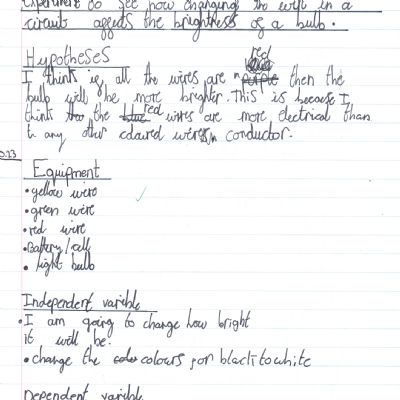 Experiment to see how changing the wire in a
circuit affects the brightness of a bulb.
Hypotheses
red
I think if all the wires are then the
bulb will be more brighter. This is because I
think the red wires are more electrical than
to any other coloured wires conductor.
Equipment
• yellow were
• green wire
• red wire
• Battery/cell
• light bulb
Independent varible
• I am going to change how bright
it will be.
• change the colours for black to white
Dependent varible